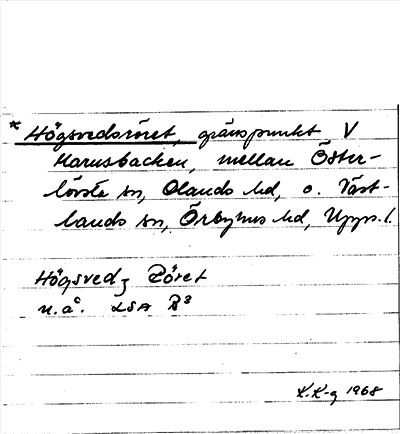 * Högsvedsröret, gränspunkt V
Harusbacken, mellan Öster-
lövsta sn, Olands hd, o. Väst-
lands sn, Örbyhus hd, Upps. l.
Högsvedz Röret
u.å. LSA B³
K.K-g 1968